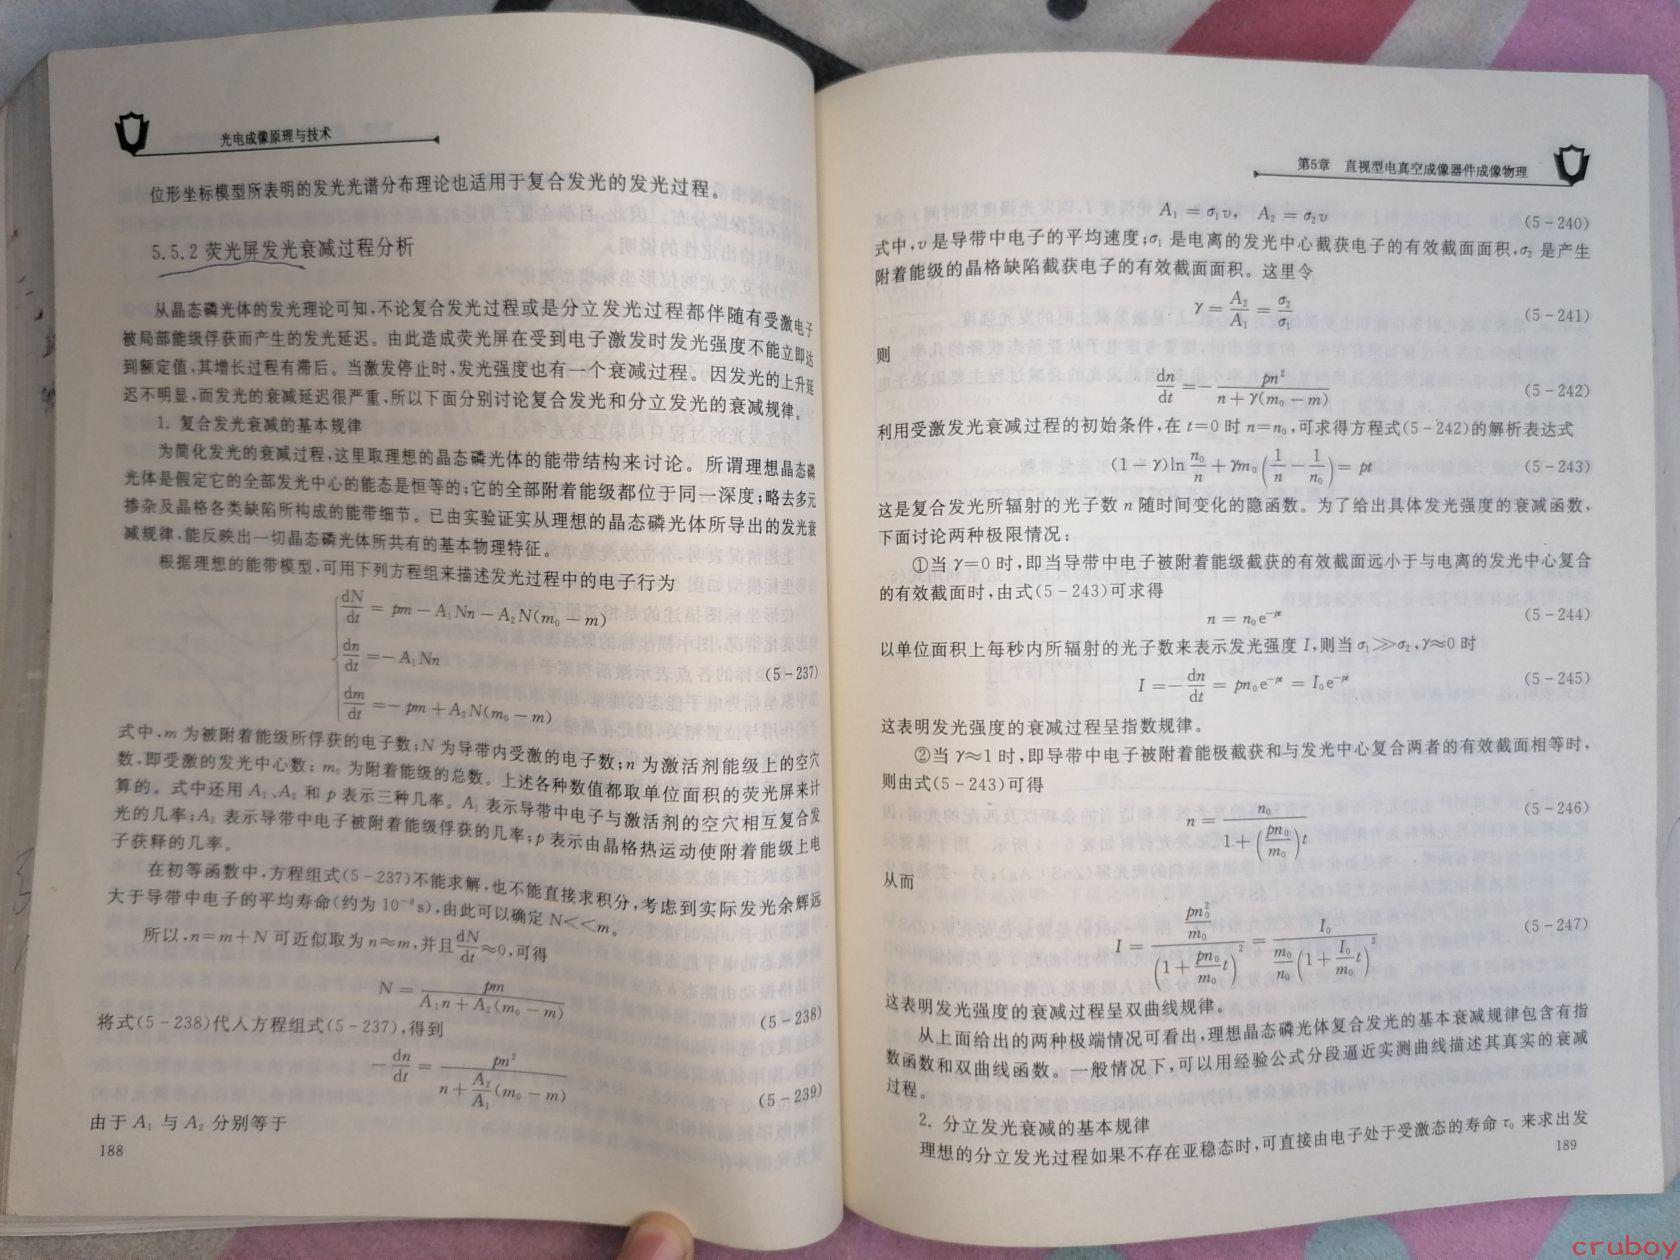 光电成像原理与技术
位形坐标模型所表明的发光光谱分布理论也适用于复合发光的发光过程。
5.5.2 荧光屏发光衰减过程分析
从晶态磷光体的发光理论可知,不论复合发光过程或是分立发光过程都伴随有受激电子
被局部能级俘获而产生的发光延迟。由此造成荧光屏在受到电子激发时发光强度不能立即达
到额定值,其增长过程有滞后。当激发停止时,发光强度也有一个衰减过程。因发光的上升延
迟不明显,而发光的衰减延迟很严重,所以下面分别讨论复合发光和分立发光的衰减规律。
1. 复合发光衰减的基本规律
为简化发光的衰减过程,这里取理想的晶态磷光体的能带结构来讨论。所谓理想晶态磷
光体是假定它的全部发光中心的能态是恒等的;它的全部附着能级都位于同一深度;略去多元
掺杂及晶格各类缺陷所构成的能带细节。已由实验证实从理想的晶态磷光体所导出的发光衰
减规律,能反映出一切晶态磷光体所共有的基本物理特征。
根据理想的能带模型,可用下列方程组来描述发光过程中的电子行为
dN/dt = pm − A₁Nn − A₂N(m₀ − m)
dn/dt = − A₁Nn
(5-237)
dm/dt = − pm + A₂N(m₀ − m)
式中,m 为被附着能级所俘获的电子数;N 为导带内受激的电子数;n 为激活剂能级上的空穴
数,即受激的发光中心数;m₀ 为附着能级的总数。上述各种数值都取单位面积的荧光屏来计
算的。式中还用 A₁、A₂ 和 p 表示三种几率。A₁ 表示导带中电子与激活剂的空穴相互复合发
光的几率;A₂ 表示导带中电子被附着能级俘获的几率;p 表示由晶格热运动使附着能级上电
子获释的几率。
在初等函数中,方程组式(5-237)不能求解,也不能直接求积分,考虑到实际发光余辉远
大于导带中电子的平均寿命(约为 10⁻⁸s),由此可以确定 N<<m。
所以,n=m+N 可近似取为 n≈m,并且dN/dt≈0,可得
N = pm/(A₁n + A₂(m₀ − m))
(5-238)
将式(5-238)代人方程组式(5-237),得到
− dn/dt = pn²/(n + (A₂/A₁)(m₀ − m))
(5-239)
由于 A₁ 与 A₂ 分别等于
188
第5章 直视型电真空成像器件成像物理
A₁ = σ₁v, A₂ = σ₂v (5-240)
式中,v 是导带中电子的平均速度;σ₁ 是电离的发光中心截获电子的有效截面面积,σ₂ 是产生
附着能级的晶格缺陷截获电子的有效截面面积。这里令
γ = A₂/A₁ = σ₂/σ₁ (5-241)
则
dn/dt = − pn²/(n + γ(m₀ − m)) (5-242)
利用受激发光衰减过程的初始条件,在 t=0 时 n=n₀,可求得方程式(5-242)的解析表达式
(1 − γ)ln n₀/n + γm₀(1/n − 1/n₀) = pt (5-243)
这是复合发光所辐射的光子数 n 随时间变化的隐函数。为了给出具体发光强度的衰减函数,
下面讨论两种极限情况:
①当 γ=0 时,即当导带中电子被附着能级截获的有效截面远小于与电离的发光中心复合
的有效截面时,由式(5-243)可求得
n = n₀e⁻ᵖᵗ (5-244)
以单位面积上每秒内所辐射的光子数来表示发光强度 I,则当 σ₁≫σ₂,γ≈0 时
I = − dn/dt = pn₀e⁻ᵖᵗ = I₀e⁻ᵖᵗ (5-245)
这表明发光强度的衰减过程呈指数规律。
②当 γ≈1 时,即导带中电子被附着能极截获和与发光中心复合两者的有效截面相等时,
则由式(5-243)可得
n = n₀/(1 + (pn₀/m₀)t) (5-246)
从而
I = (pn₀²/m₀)/(1 + (pn₀/m₀)t)² = I₀/((m₀/n₀)(1 + (I₀/m₀)t)²) (5-247)
这表明发光强度的衰减过程呈双曲线规律。
从上面给出的两种极端情况可看出,理想晶态磷光体复合发光的基本衰减规律包含有指
数函数和双曲线函数。一般情况下,可以用经验公式分段逼近实测曲线描述其真实的衰减
过程。
2. 分立发光衰减的基本规律
理想的分立发光过程如果不存在亚稳态时,可直接由电子处于受激态的寿命 τ₀ 来求出发
189
cruboy